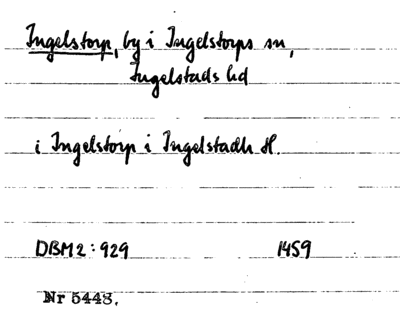 Ingelstorp, by i Ingelstorps sn,
Ingelstads hd
i Ingelstorp i Ingelstadh H.
DBM2:929 1459
Nr 5448.